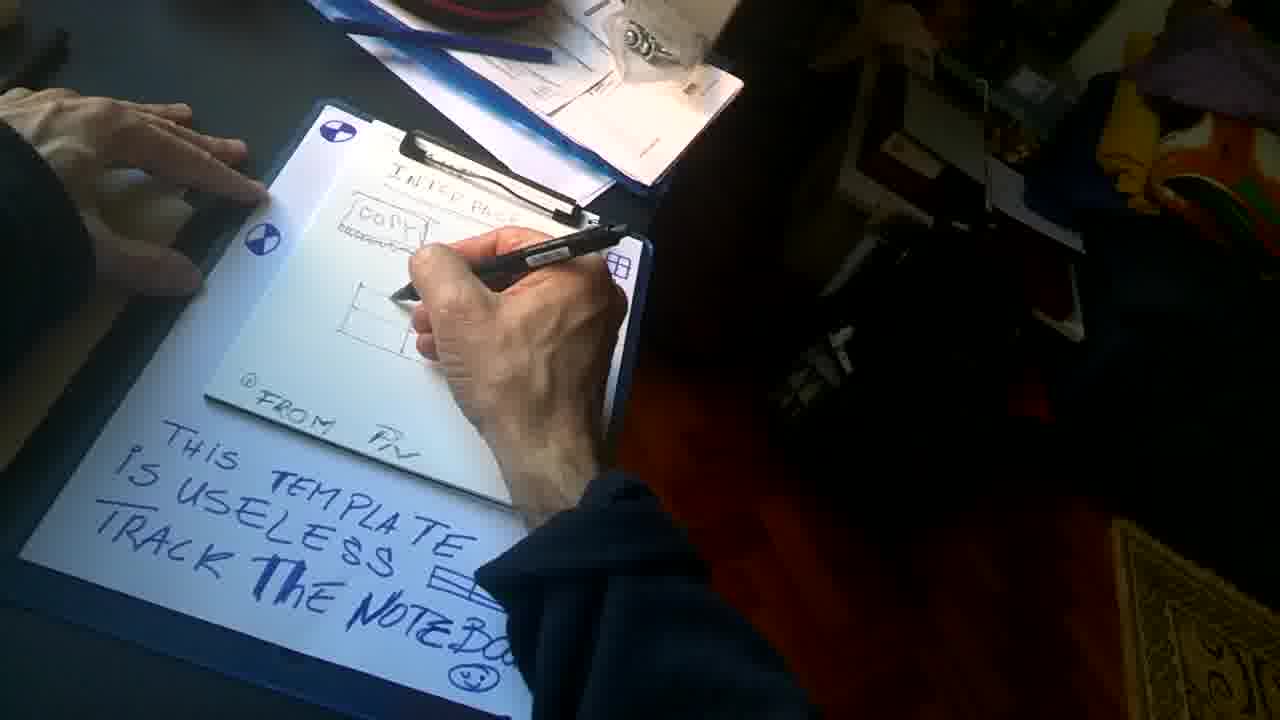 INTERFACE
COPY
① FROM
THIS TEMPLATE
IS USELESS
TRACK THE NOTEBOO